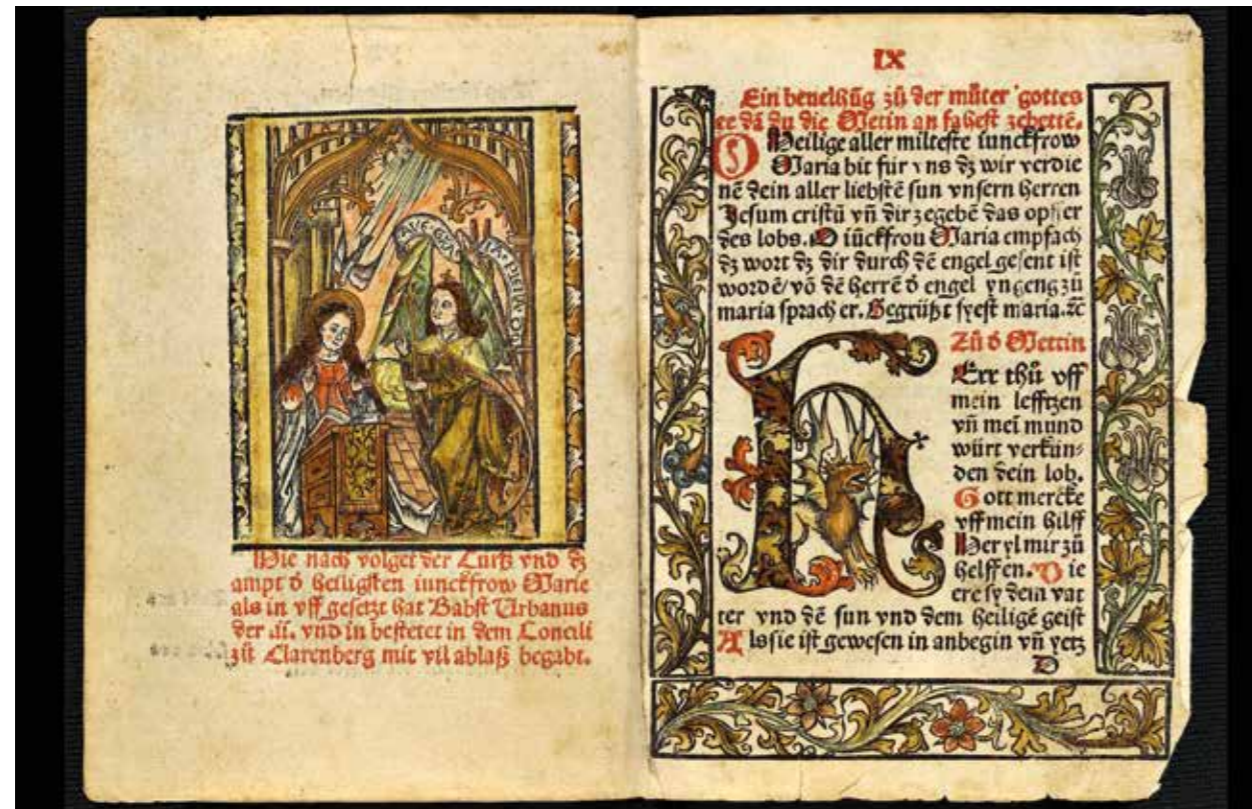 AVE GRA
CIA PLENA DO
Hie nach volget der Curß vnd dz
ampt d̄ heiligsten iunckfrow Marie
als in vff gesetzt hat Babst Urbanus
der .ii. vnd in bestetet in dem Concili
zů Clarenberg mit vil ablaß begabt.
IX
Ein beuelhūg zů der můter gottes
ee dā du die Metin an fahest zebettē.
O Heilige aller milteste iunckfrow
Maria bit für vns dz wir verdie
nē dein aller liebstē sun vnsern herren
Jesum cristū vn̄ dir zegebē das opffer
des lobs. O iūckfrou Maria empfach
dz wort dz dir durch dē engel gesent ist
wordē/ vō dē herrē d̄ engel yngeng zů
maria sprach er. Gegrüßt syest maria. ⁊c
Zů d̄ Mettin
HErr thů vff
mein lefftzen
vn̄ mei mund
würt verkün-
den dein lob.
Gott mercke
vff mein hilff
Her yl mir zů
helffen. Die
ere sy dem vat
ter vnd dē sun vnd dem heiligē geist
Als sie ist gewesen in anbegin vn̄ yetz
D